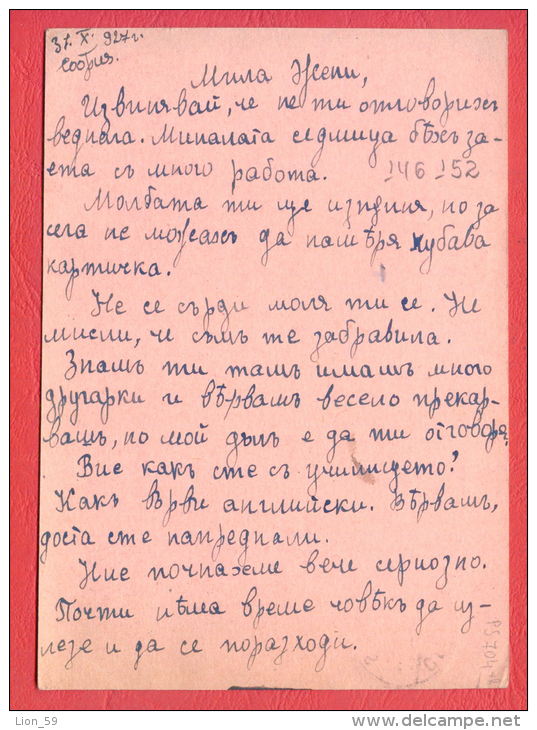 31. X. 927 г.
София.
Мила Жени,
Извинявай, че не ти отговорихъ
веднага. Миналата седмица бѣхъ за-
ета съ много работа. 146 152
Молбата ти ще изпълня, но за
сега не можахъ да намѣря хубава
картичка.
Не се сърди моля ти се. Не
мисли, че съмъ те забравила.
Знамъ ти тамъ имашъ много
другарки и вѣрвамъ весело прекар-
вашъ, но мой дългъ е да ти отговоря.
Вие какъ сте съ училището?
Какъ върви английски. Вѣрвамъ,
доста сте напреднали.
Ние почнахме вече сериозно.
Почти нѣма време човѣкъ да из-
лезе и да се поразходи.
PS704
Lion_59